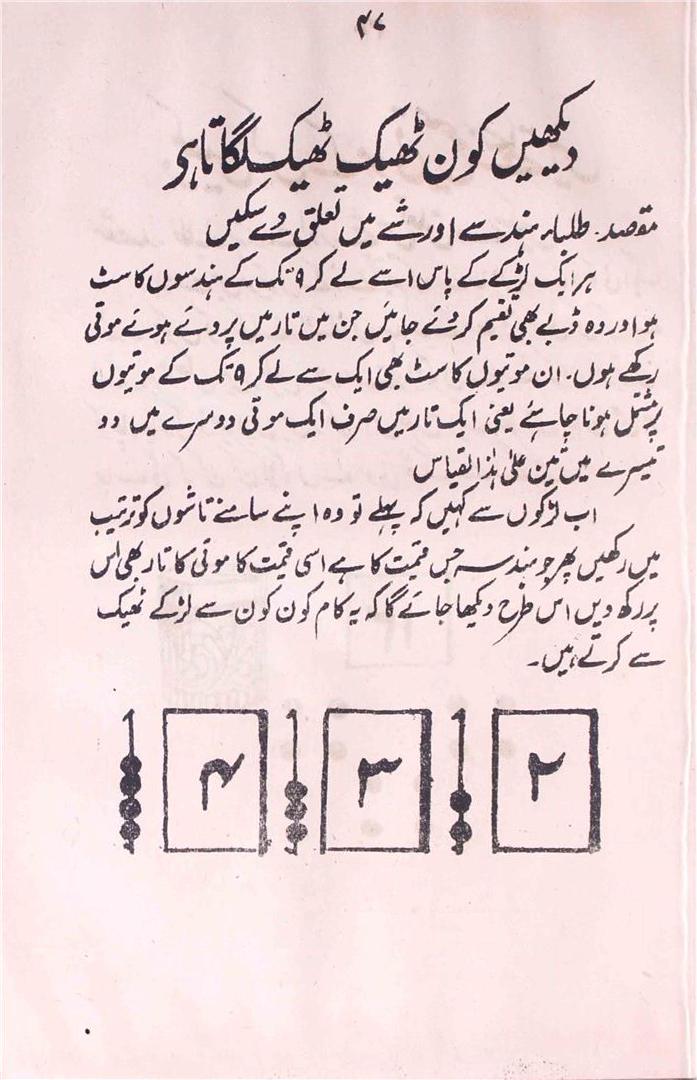 ۴۷
دیکھیں کون ٹھیک ٹھیک لگاتا ہی
مقصد۔ طلباء ہندسے اور شے میں تعلق دے سکیں
ہر ایک لڑکے کے پاس ا سے لے کر ۹ تک کے ہندسوں کا سٹ
ہو اور وہ ڈبے بھی تقیم کر دئے جائیں جن میں تار میں پروئے ہوئے موتی
رکھے ہوں۔ ان موتیوں کا سٹ بھی ایک سے لے کر ۹ تک کے موتیوں
پر مشتمل ہونا چاہئے یعنی ایک تار میں صرف ایک موتی دوسرے میں دو
تیسرے میں تین علیٰ ہذا لقیاس
اب لڑکوں سے کہیں کہ پہلے تو وہ اپنے سامنے تاشوں کو ترتیب
میں رکھیں پھر جو ہندسہ جس قیمت کا ہے اسی قیمت کا موتی کا تار بھی اس
پر رکھ دیں اس طرح دیکھا جائے گا کہ یہ کام کون کون سے لڑکے ٹھیک
سے کرتے ہیں۔
۲ ۳ ۴